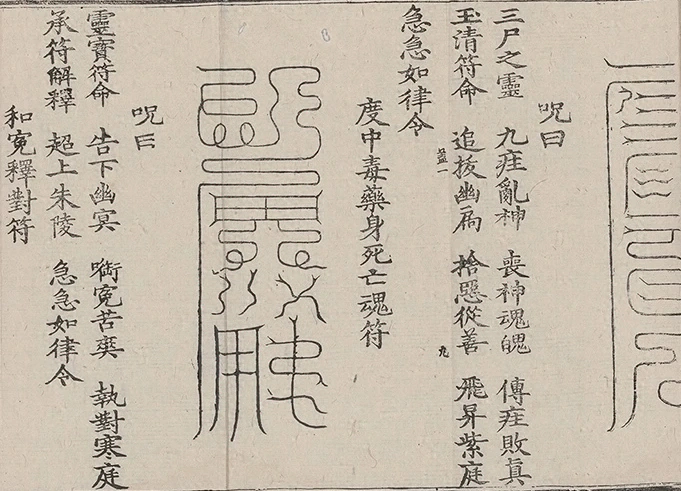 呪曰
三尸之靈　九疰亂神　喪神魂魄　傳疰敗真
玉清符命　追拔幽扃　捨惡從善　飛昇紫庭
蓋一
九
急急如律令
度中毒藥身死亡魂符
呪曰
靈寶符命　告下幽冥　銜寃苦爽　執對寒庭
承符解釋　超上朱陵　急急如律令
和寃釋對符